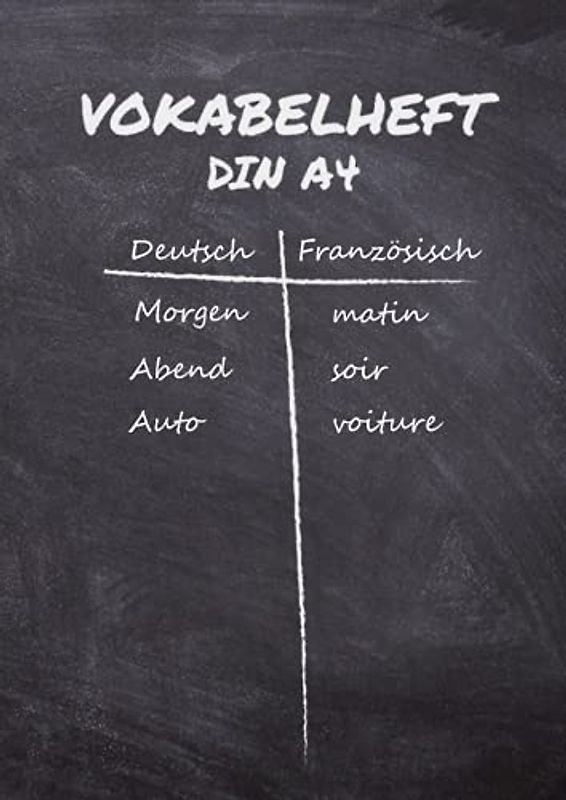 VOKABELHEFT
DIN A4
Deutsch Französisch
Morgen matin
Abend soir
Auto voiture